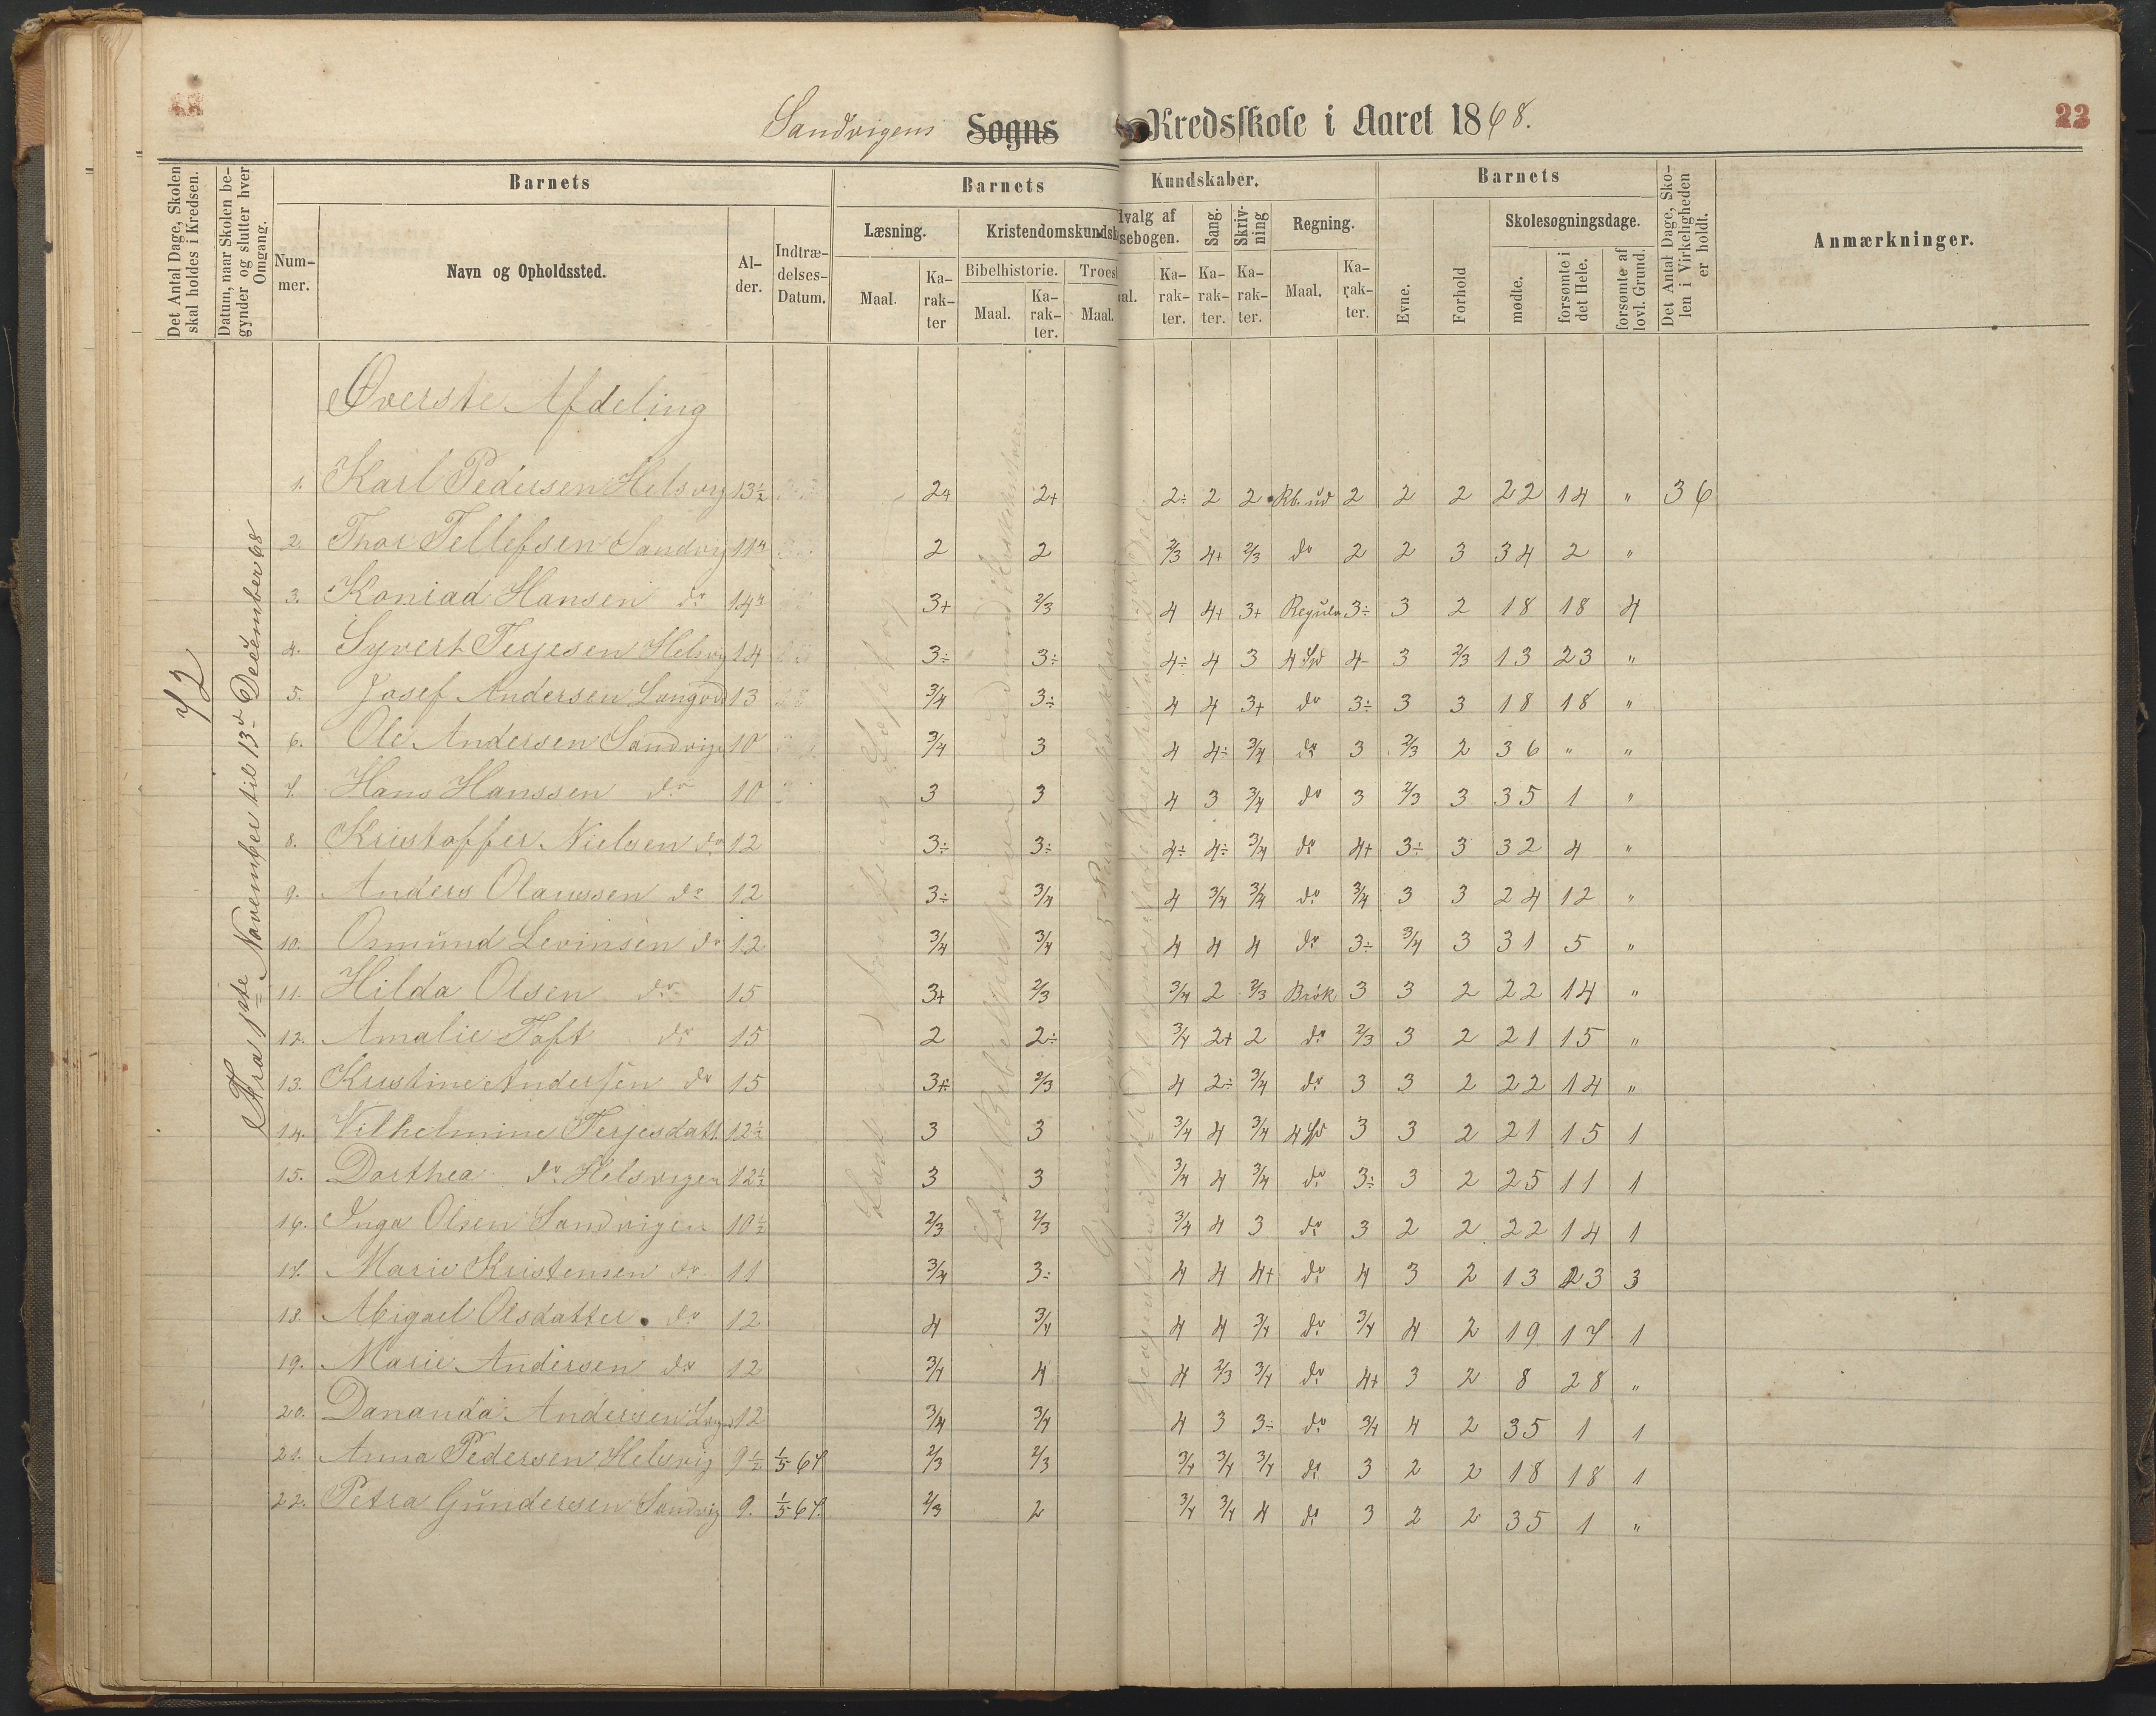 Sandvigens Sogns Kredsskole i Aaret 1868.
22
Det Antal Dage, Skolen skal holdes i Kredsen.
Datum, naar Skolen begynder og slutter hver Omgang.
Barnets
Nummer.
Navn og Opholdssted.
Alder.
Indtrædelses-Datum.
Barnets Kundskaber.
Læsning.
Maal.
Karakter
Kristendomskundsk
Bibelhistorie.
Maal.
Karakter.
Troes
Maal.
dvalg af
sebogen.
al.
Karakter.
Sang.
Karakter.
Skrivning
Karakter.
Regning.
Maal.
Karakter.
Barnets
Evne.
Forhold
Skolesøgningsdage.
mødte.
forsømte i det Hele.
forsømte af lovl. Grund.
Det Antal Dage, Skolen i Virkeligheden er holdt.
Anmærkninger.
72
Fra 1ste November til 13de December 68
Øverste Afdeling
1. Karl Pedersen Helsvig 13½ 2+ 2+ 2÷ 2 2 Rb. ud 2 2 2 22 14 " 36
2. Thor Tellefsen Sandvig 2 2 2/3 4+ 2/3 do 2 2 3 34 2 "
3. Konrad Hansen do 3+ 2/3 4 4+ 3+ 3÷ 3 2 18 18 4
4. Syvert Terjesen Helsvig 14 3÷ 3÷ 4÷ 4 3 4 4 3 2/3 13 23 "
5. Josef Andersen 13 3/4 3÷ 4 4 3+ do 3÷ 3 3 18 18 "
6. Ole Andersen Sandvig 10 3/4 3 4 4÷ 3/4 do 3 2/3 2 36 " "
7. Hans Hanssen do 10 3 3 4 3 3/4 do 3 2/3 3 35 1 "
8. Kristoffer Nielsen do 12 3÷ 3÷ 4÷ 4÷ 3/4 do 4+ 3÷ 3 32 4 "
9. Anders Olaussen do 12 3÷ 3/4 4 3/4 3/4 do 3/4 3 3 24 12 "
10. Osmund Levinsen do 12 3/4 3/4 4 4 4 do 3÷ 3/4 3 31 5 "
11. Hilda Olsen do 15 3+ 2/3 3/4 2 2/3 Brøk 3 3 2 22 14 "
12. Amalie Toft do 15 2 2÷ 3/4 2+ 2 do 2/3 3 2 21 15 "
13. Kristine Andersen do 15 3+ 2/3 4 2÷ 3/4 do 3 3 2 22 14 "
14. Vilhelmine Terjesdatt. 12½ 3 3 3/4 4 3/4 4 3 3 2 21 15 1
15. Dorthea do Helsvigen 12½ 3 3 3/4 4 3/4 do 3÷ 3 2 25 11 1
16. Inga Olsen Sandvigen 10½ 2/3 2/3 3/4 4 3 do 3 2 2 22 14 1
17. Marie Kristensen do 11 3/4 3÷ 4 4 4+ do 4 3 2 13 23 3
18. Abigael Olsdatter do 12 4 3/4 4 4 3/4 do 3/4 4 2 19 17 1
19. Marie Andersen do 12 3/4 4 4 2/3 3/4 do 4+ 3 2 8 28 "
20. Dananda Andersen 12 3/4 3/4 4 3 3÷ do 3/4 4 2 35 1 1
21. Anna Pedersen Helsvig 9½ 1/5 67 2/3 2/3 3/4 3/4 3/4 do 3 2 2 18 18 1
22. Petra Gundersen Sandvig 9. 1/5 67. 2/3 2 3/4 3/4 4 do 3 2 2 35 1 "